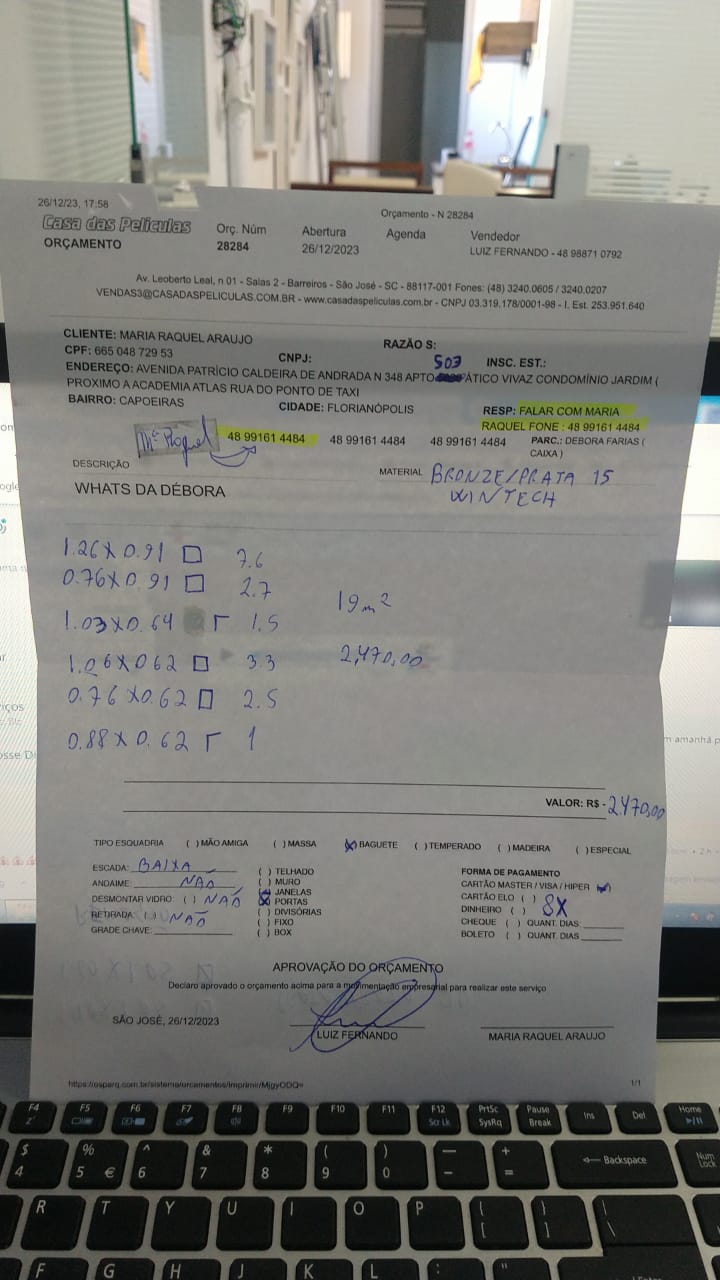 26/12/23, 17:58
Orçamento - N 28284
Casa das Películas
ORÇAMENTO
Orç. Núm
28284
Abertura
26/12/2023
Agenda
Vendedor
LUIZ FERNANDO - 48 98871 0792
Av. Leoberto Leal, n 01 - Salas 2 - Barreiros - São José - SC - 88117-001 Fones: (48) 3240.0605 / 3240.0207
VENDAS3@CASADASPELICULAS.COM.BR - www.casadaspeliculas.com.br - CNPJ 03.319.178/0001-98 - I. Est. 253.951.640
CLIENTE: MARIA RAQUEL ARAUJO
RAZÃO S:
CPF: 665 048 729 53
CNPJ:
503
INSC. EST.:
ENDEREÇO: AVENIDA PATRÍCIO CALDEIRA DE ANDRADA N 348 APTO ÁTICO VIVAZ CONDOMÍNIO JARDIM (
PROXIMO A ACADEMIA ATLAS RUA DO PONTO DE TAXI
BAIRRO: CAPOEIRAS
CIDADE: FLORIANÓPOLIS
RESP: FALAR COM MARIA
RAQUEL FONE : 48 99161 4484
Mª Raquel
48 99161 4484
48 99161 4484
48 99161 4484
PARC.: DEBORA FARIAS (
CAIXA )
DESCRIÇÃO
MATERIAL BRONZE/PRATA 15
WINTECH
WHATS DA DÉBORA
1.26 X 0.91 □ 7.6
0.76 X 0.91 □ 2.7
1.03 X 0.64 Γ 1.5
19m²
1.06 X 062 □ 33
2,470,00
0.76 X 0.62 □ 2.5
0.88 X 0.62 Γ 1
VALOR: R$ - 2.470,00
TIPO ESQUADRIA ( ) MÃO AMIGA ( ) MASSA (X) BAGUETE ( ) TEMPERADO ( ) MADEIRA ( ) ESPECIAL
ESCADA: BAIXA
ANDAIME: NÃO
DESMONTAR VIDRO: ( ) NÃO
RETIRADA: ( ) NÃO
GRADE CHAVE:
( ) TELHADO
( ) MURO
(X) JANELAS
(X) PORTAS
( ) DIVISÓRIAS
( ) FIXO
( ) BOX
FORMA DE PAGAMENTO
CARTÃO MASTER / VISA / HIPER (✓)
CARTÃO ELO ( ) 8X
DINHEIRO ( )
CHEQUE ( ) QUANT. DIAS:
BOLETO ( ) QUANT. DIAS
APROVAÇÃO DO ORÇAMENTO
Declaro aprovado o orçamento acima para a movimentação empresarial para realizar este serviço
SÃO JOSÉ, 26/12/2023
LUIZ FERNANDO
MARIA RAQUEL ARAUJO
https://osparq.com.br/sistema/orcamentos/imprimir/MjgyODQ=
1/1
F4 F5 F6 F7 F8 F9 F10 F11 F12 PrtSc Pause Ins Del Home
Scr Lk SysRq Break
$ % ^ & * ( ) — + Backspace Num
4 5 € 6 7 8 9 0 - = Lock
R T Y U I O P { } |
[ ] \
F G H J K L : "